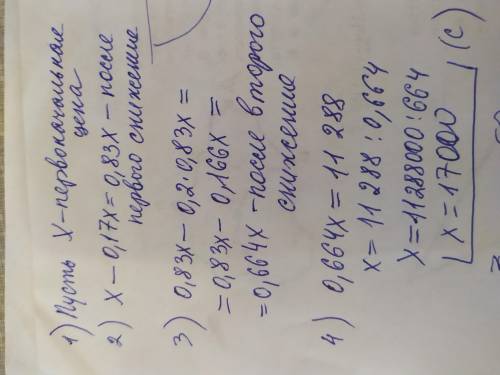 1) Пусть x - первоначальная
цена
2) x - 0,17x = 0,83x - после
первого снижение
3) 0,83x - 0,2·0,83x =
= 0,83x - 0,166x =
= 0,664x - после второго
снижение
4) 0,664x = 11 288
x = 11 288 : 0,664
x = 11288000 : 664
x = 17000 (с)